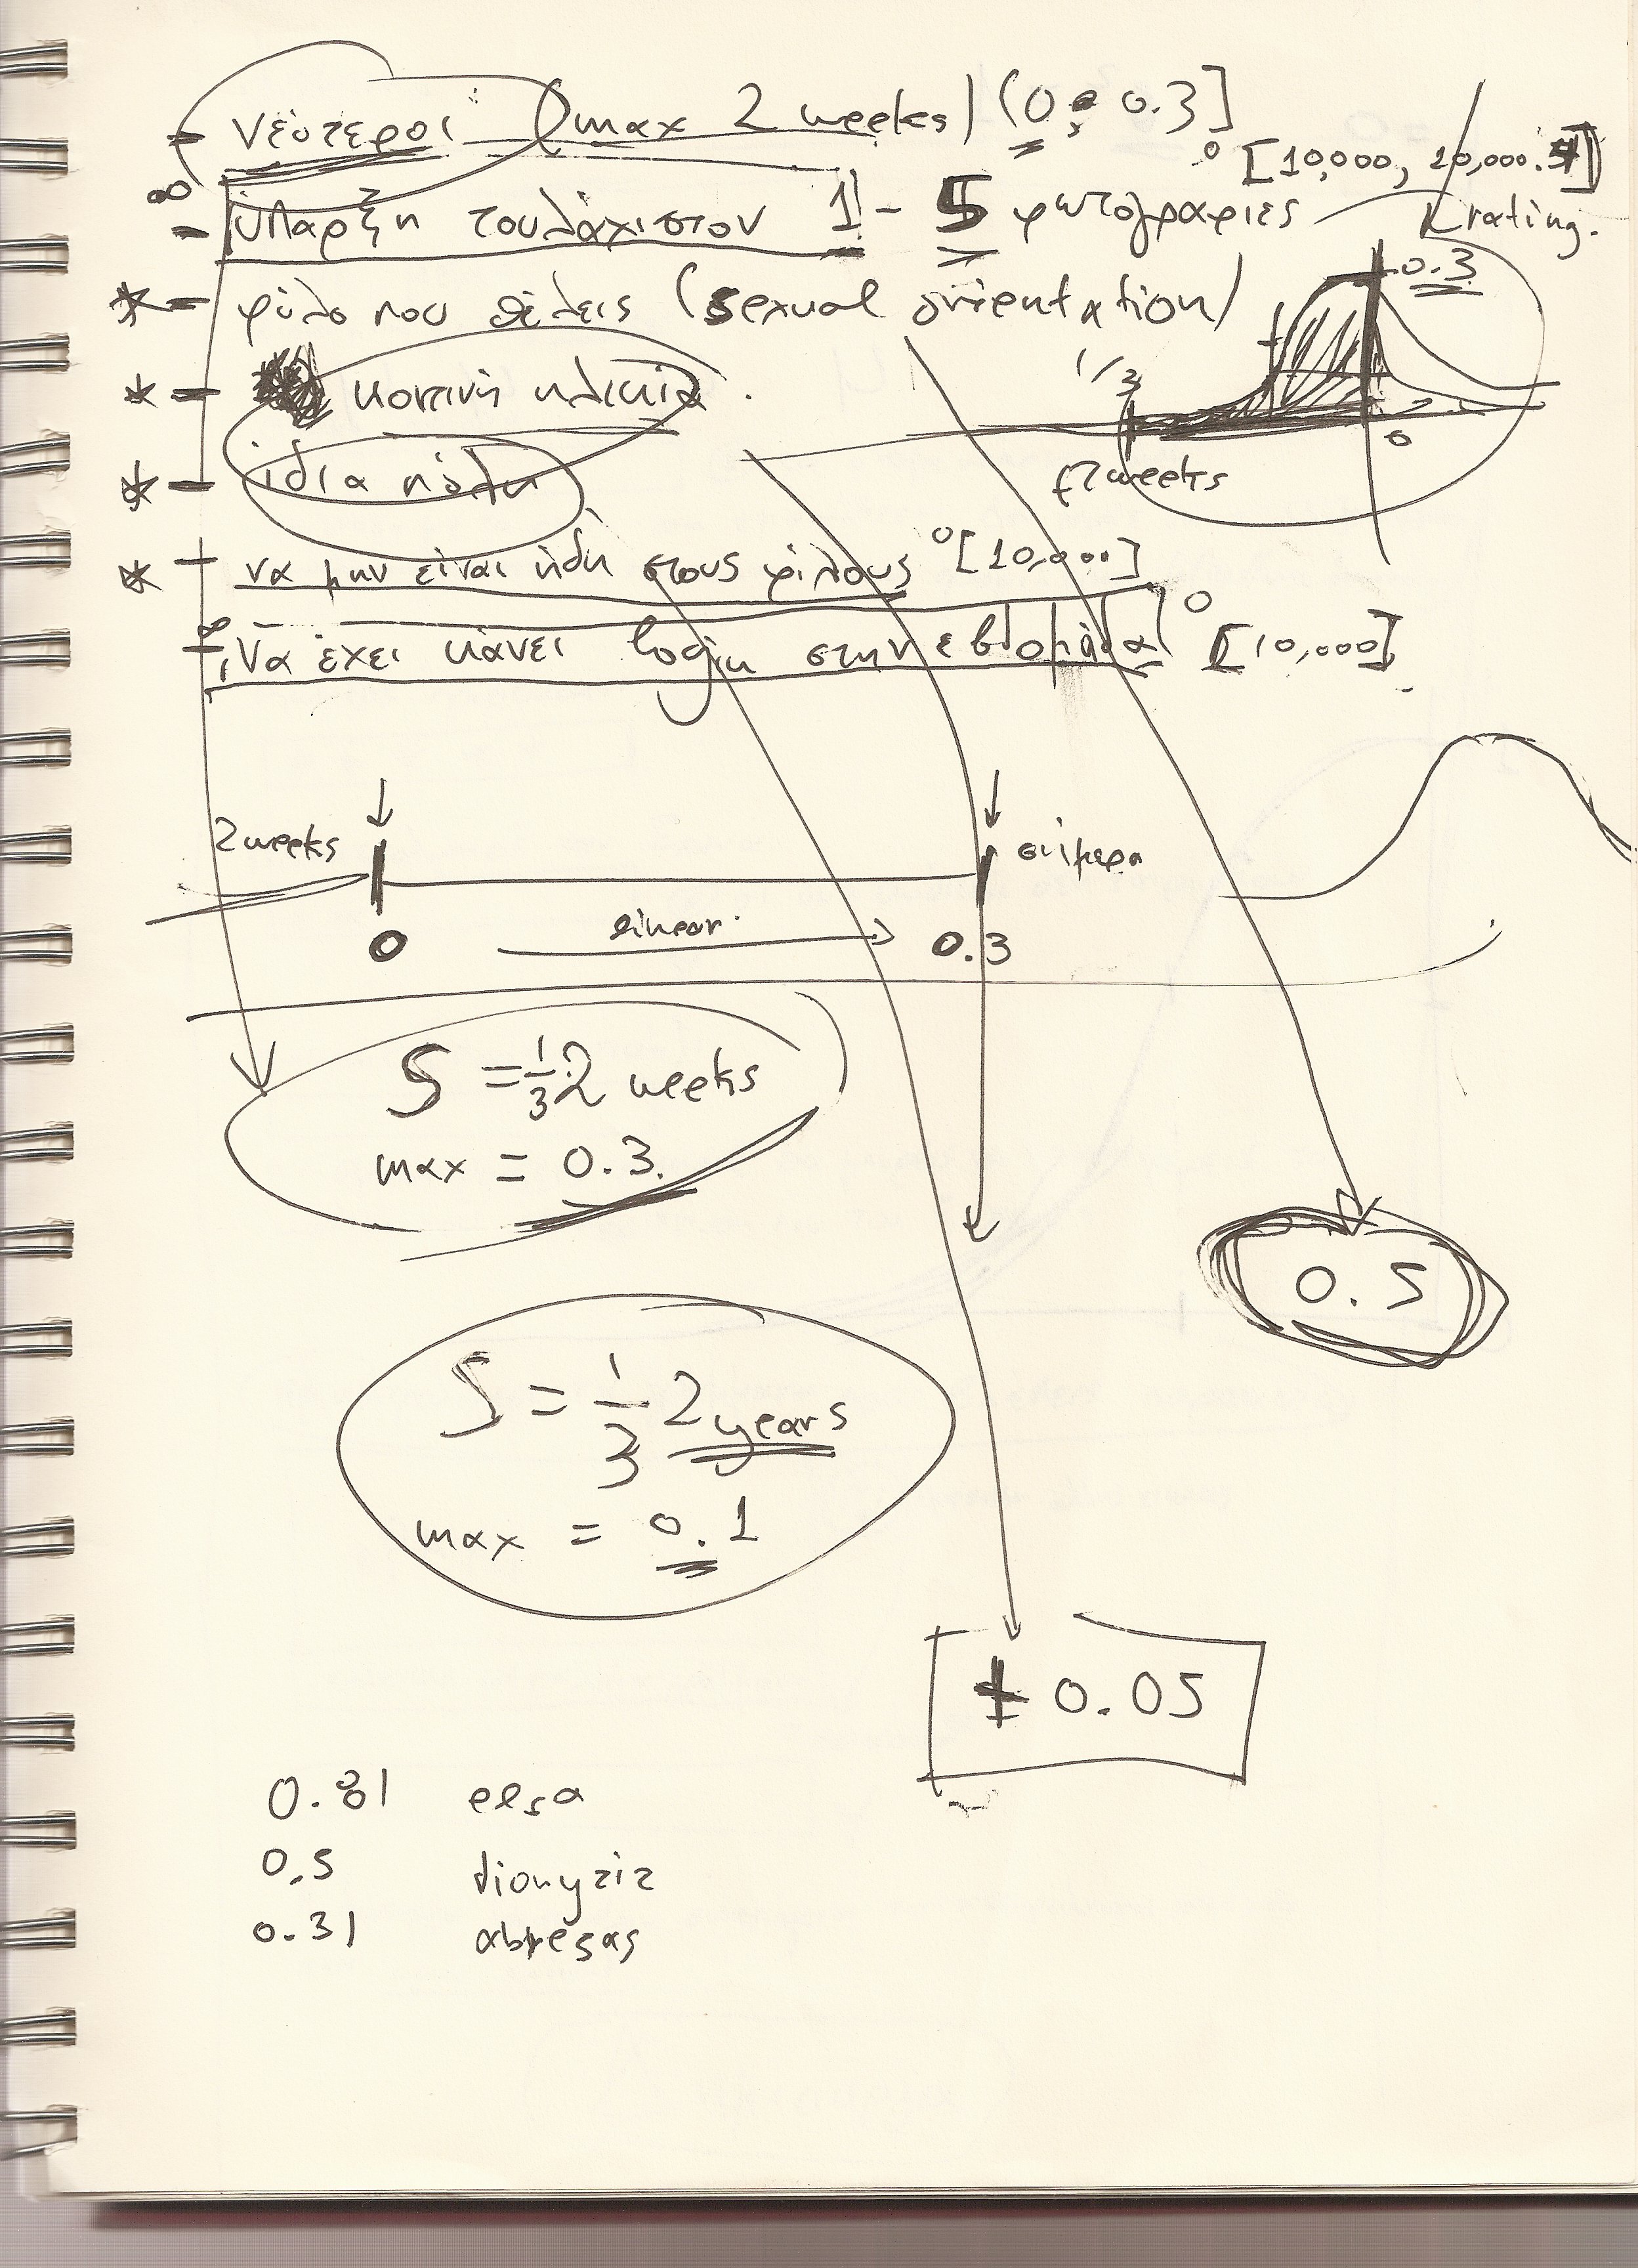 - νεότεροι (max 2 weeks) (0, 0.3]
[10,000, 20,000]
- ύπαρξη τουλάχιστον 1 - 5 φωτογραφιες rating.
* - φύλο που θέλεις (sexual orientation)
0.3
* - κοτινή ηλικία.
1/3
0
* - ίδια πόλη
2 weeks
* - να μην είναι ήδη στους φίλους [10,000]
- να έχει κάνει login στην εβδομάδα [10,000]
2 weeks σήμερα
0 linear 0.3
S = 1/3 2 weeks
max = 0.3
0.5
S = 1/3 2 years
max = 0.1
+ 0.05
0.81 elsa
0.5 dionyziz
0.31 abresas